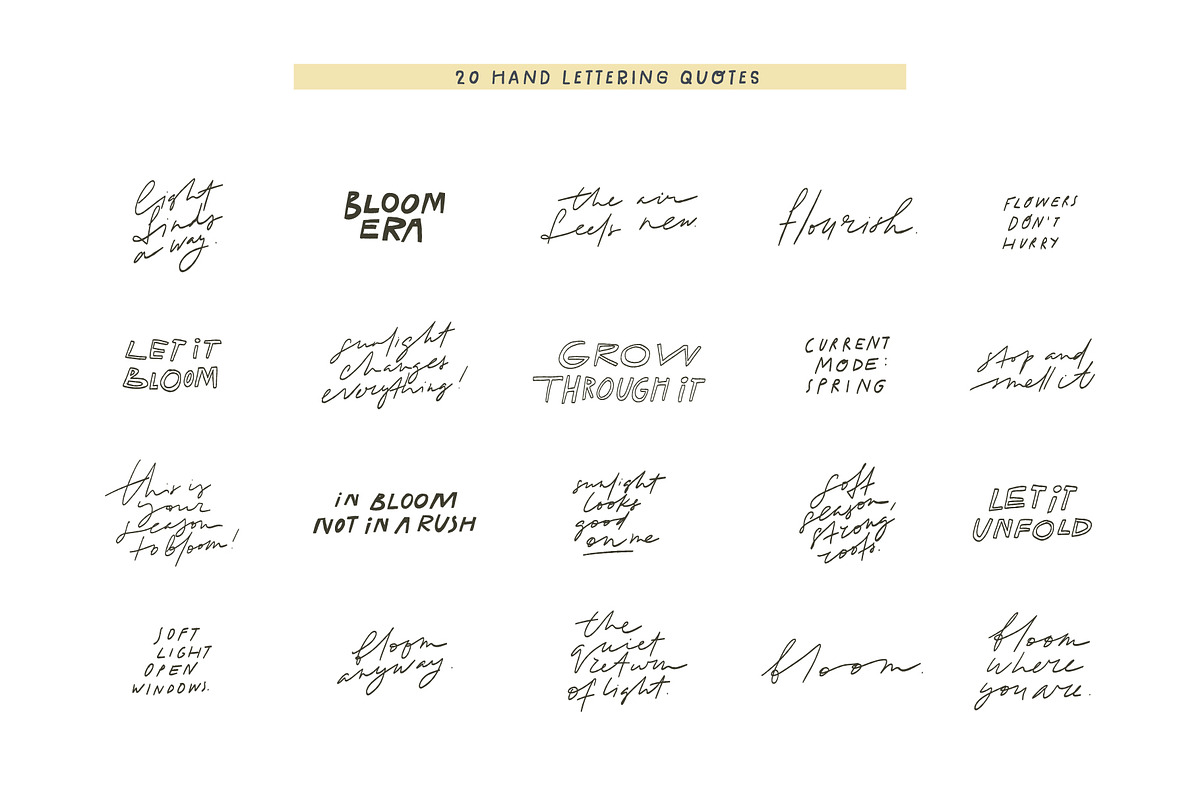 20 HAND LETTERING QUOTES
light
finds
a way.
BLOOM
ERA
the air
feels new.
flourish.
FLOWERS
DON'T
HURRY
LET iT
BLOOM
sunlight
changes
everything!
GROW
THROUGH iT
CURRENT
MODE:
SPRING
stop and
smell it
this is
your
season
to bloom!
iN BLOOM
NOT iN A RUSH
sunlight
looks
good
on me
soft
season,
strong
roots.
LET iT
UNFOLD
SOFT
LIGHT
OPEN
WINDOWS.
bloom
anyway.
the
quiet
return
of light.
bloom.
bloom
where
you are.